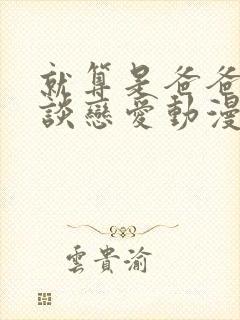 就算是爸爸
談戀愛動漫
雲貴渝